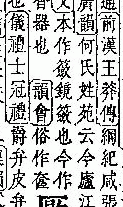 通前漢王莽傳綱紀咸張
廣韻何氏姓苑云今廬
文本作籢鏡籢也今作
器也韻會俗作奩
也儀禮士冠禮爵弁皮弁